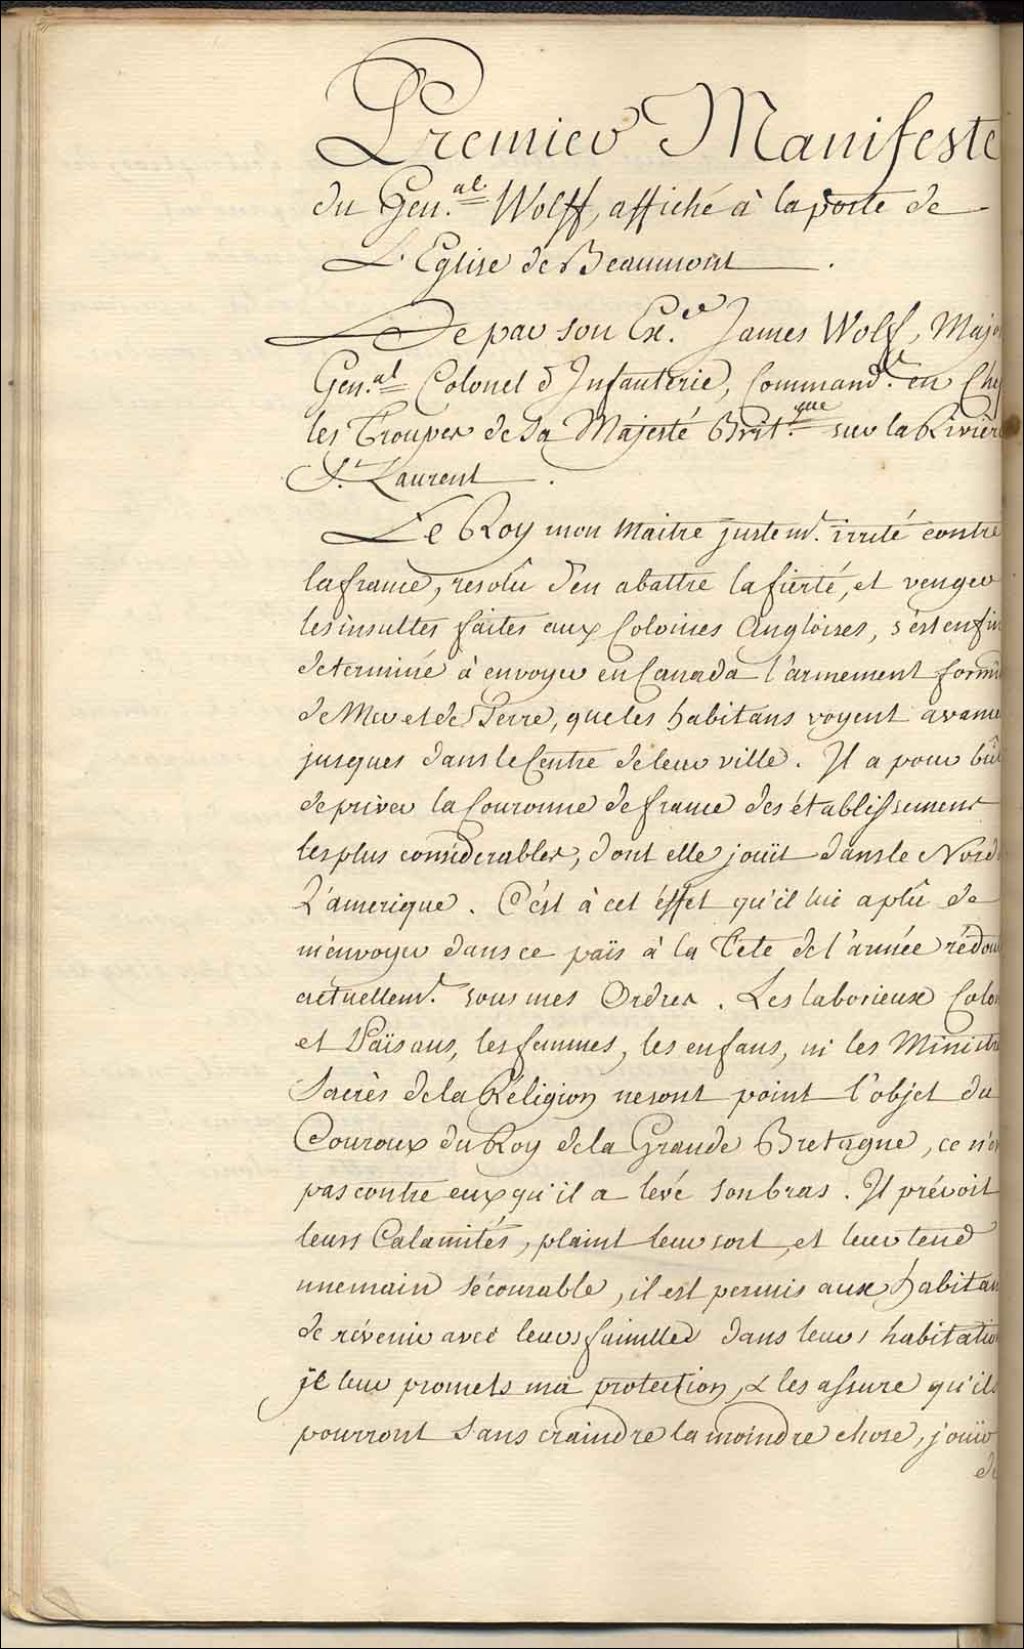 Premier Manifeste
du Gen.al Wolff, affiché à la porte de
L'Eglise de Beaumont.
De par son Ex.ce James Wolf, Majo
Gen.al Colonel d'Infanterie, Command.t en Chef
les Troupes de Sa Majesté Brit.que sur la Rivièr
St. Laurent.
Le Roy mon Maitre justem.t irrité contre
la france, resolû d'en abattre la fierté, et venger
les insultes faites aux Colonies Angloises, s'est enfin
determiné à envoyer en Canada l'armement formi
de Mer et de Terre, que les habitans voyent avancé
jusques dans le Centre de leur ville. Il a pour bût
de priver la Couronne de france des établissemens
les plus considerables, dont elle joüit dans le Nord d
L'amerique. C'est à cet éffet qu'il lui a plû de
m'envoyer dans ce païs à la Tete de l'armée rédou
actuellem.t sous mes Ordres. Les laborieux Colon
et Païsans, les femmes, les enfans, ni les Ministre
Sacrès de la Réligion ne sont point l'objet du
Couroux du Roy de la Grande Bretagne, ce n'es
pas contre eux qu'il a levé son bras. Il prévoit
leurs Calamités, plaint leur sort, et leur tend
une main sécourable, il est permis aux habitan
de révenir avec leurs familles dans leurs habitatio
je leur promets ma protection, & les assure qu'ils
pourront sans craindre la moindre chose, joüir
de